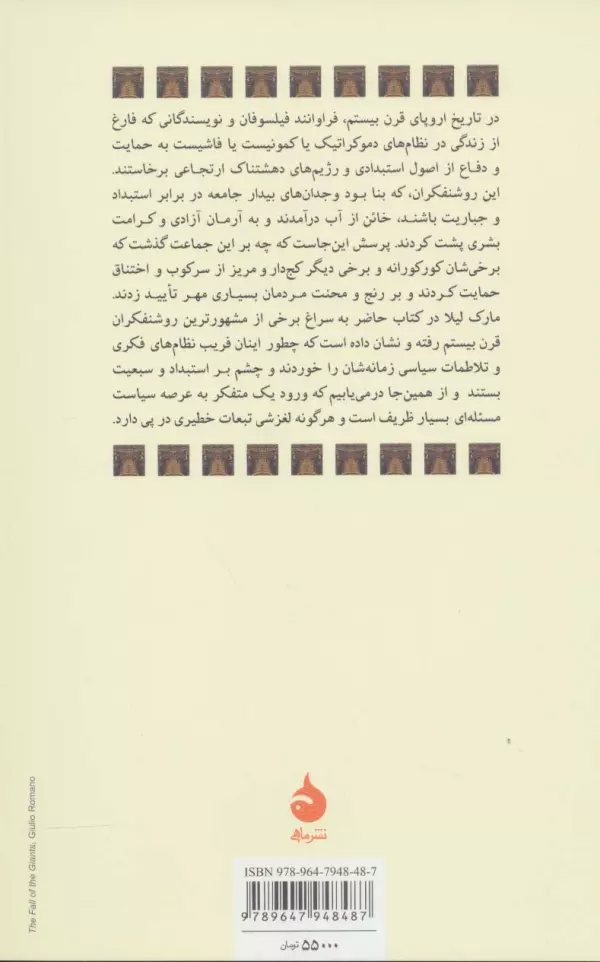 در تاریخ اروپای قرن بیستم، فراوانند فیلسوفان و نویسندگانی که فارغ
از زندگی در نظام‌های دموکراتیک یا کمونیست یا فاشیست به حمایت
و دفاع از اصول استبدادی و رژیم‌های دهشتناک ارتجاعی برخاستند.
این روشنفکران، که بنا بود وجدان‌های بیدار جامعه در برابر استبداد
و جباریت باشند، خائن از آب درآمدند و به آرمان آزادی و کرامت
بشری پشت کردند. پرسش این‌جاست که چه بر این جماعت گذشت که
برخی‌شان کورکورانه و برخی دیگر کج‌دار و مریز از سرکوب و اختناق
حمایت کردند و بر رنج و محنت مردمان بسیاری مهر تأیید زدند.
مارک لیلا در کتاب حاضر به سراغ برخی از مشهورترین روشنفکران
قرن بیستم رفته و نشان داده است که چطور اینان فریب نظام‌های فکری
و تلاطمات سیاسی زمانه‌شان را خوردند و چشم بر استبداد و سبعیت
بستند و از همین‌جا درمی‌یابیم که ورود یک متفکر به عرصه سیاست
مسئله‌ای بسیار ظریف است و هرگونه لغزشی تبعات خطیری در پی دارد.
The Fall of the Giants, Giulio Romano
نشرماهی
ISBN 978-964-7948-48-7
9 789647 948487
۵۵۰۰۰ تومان